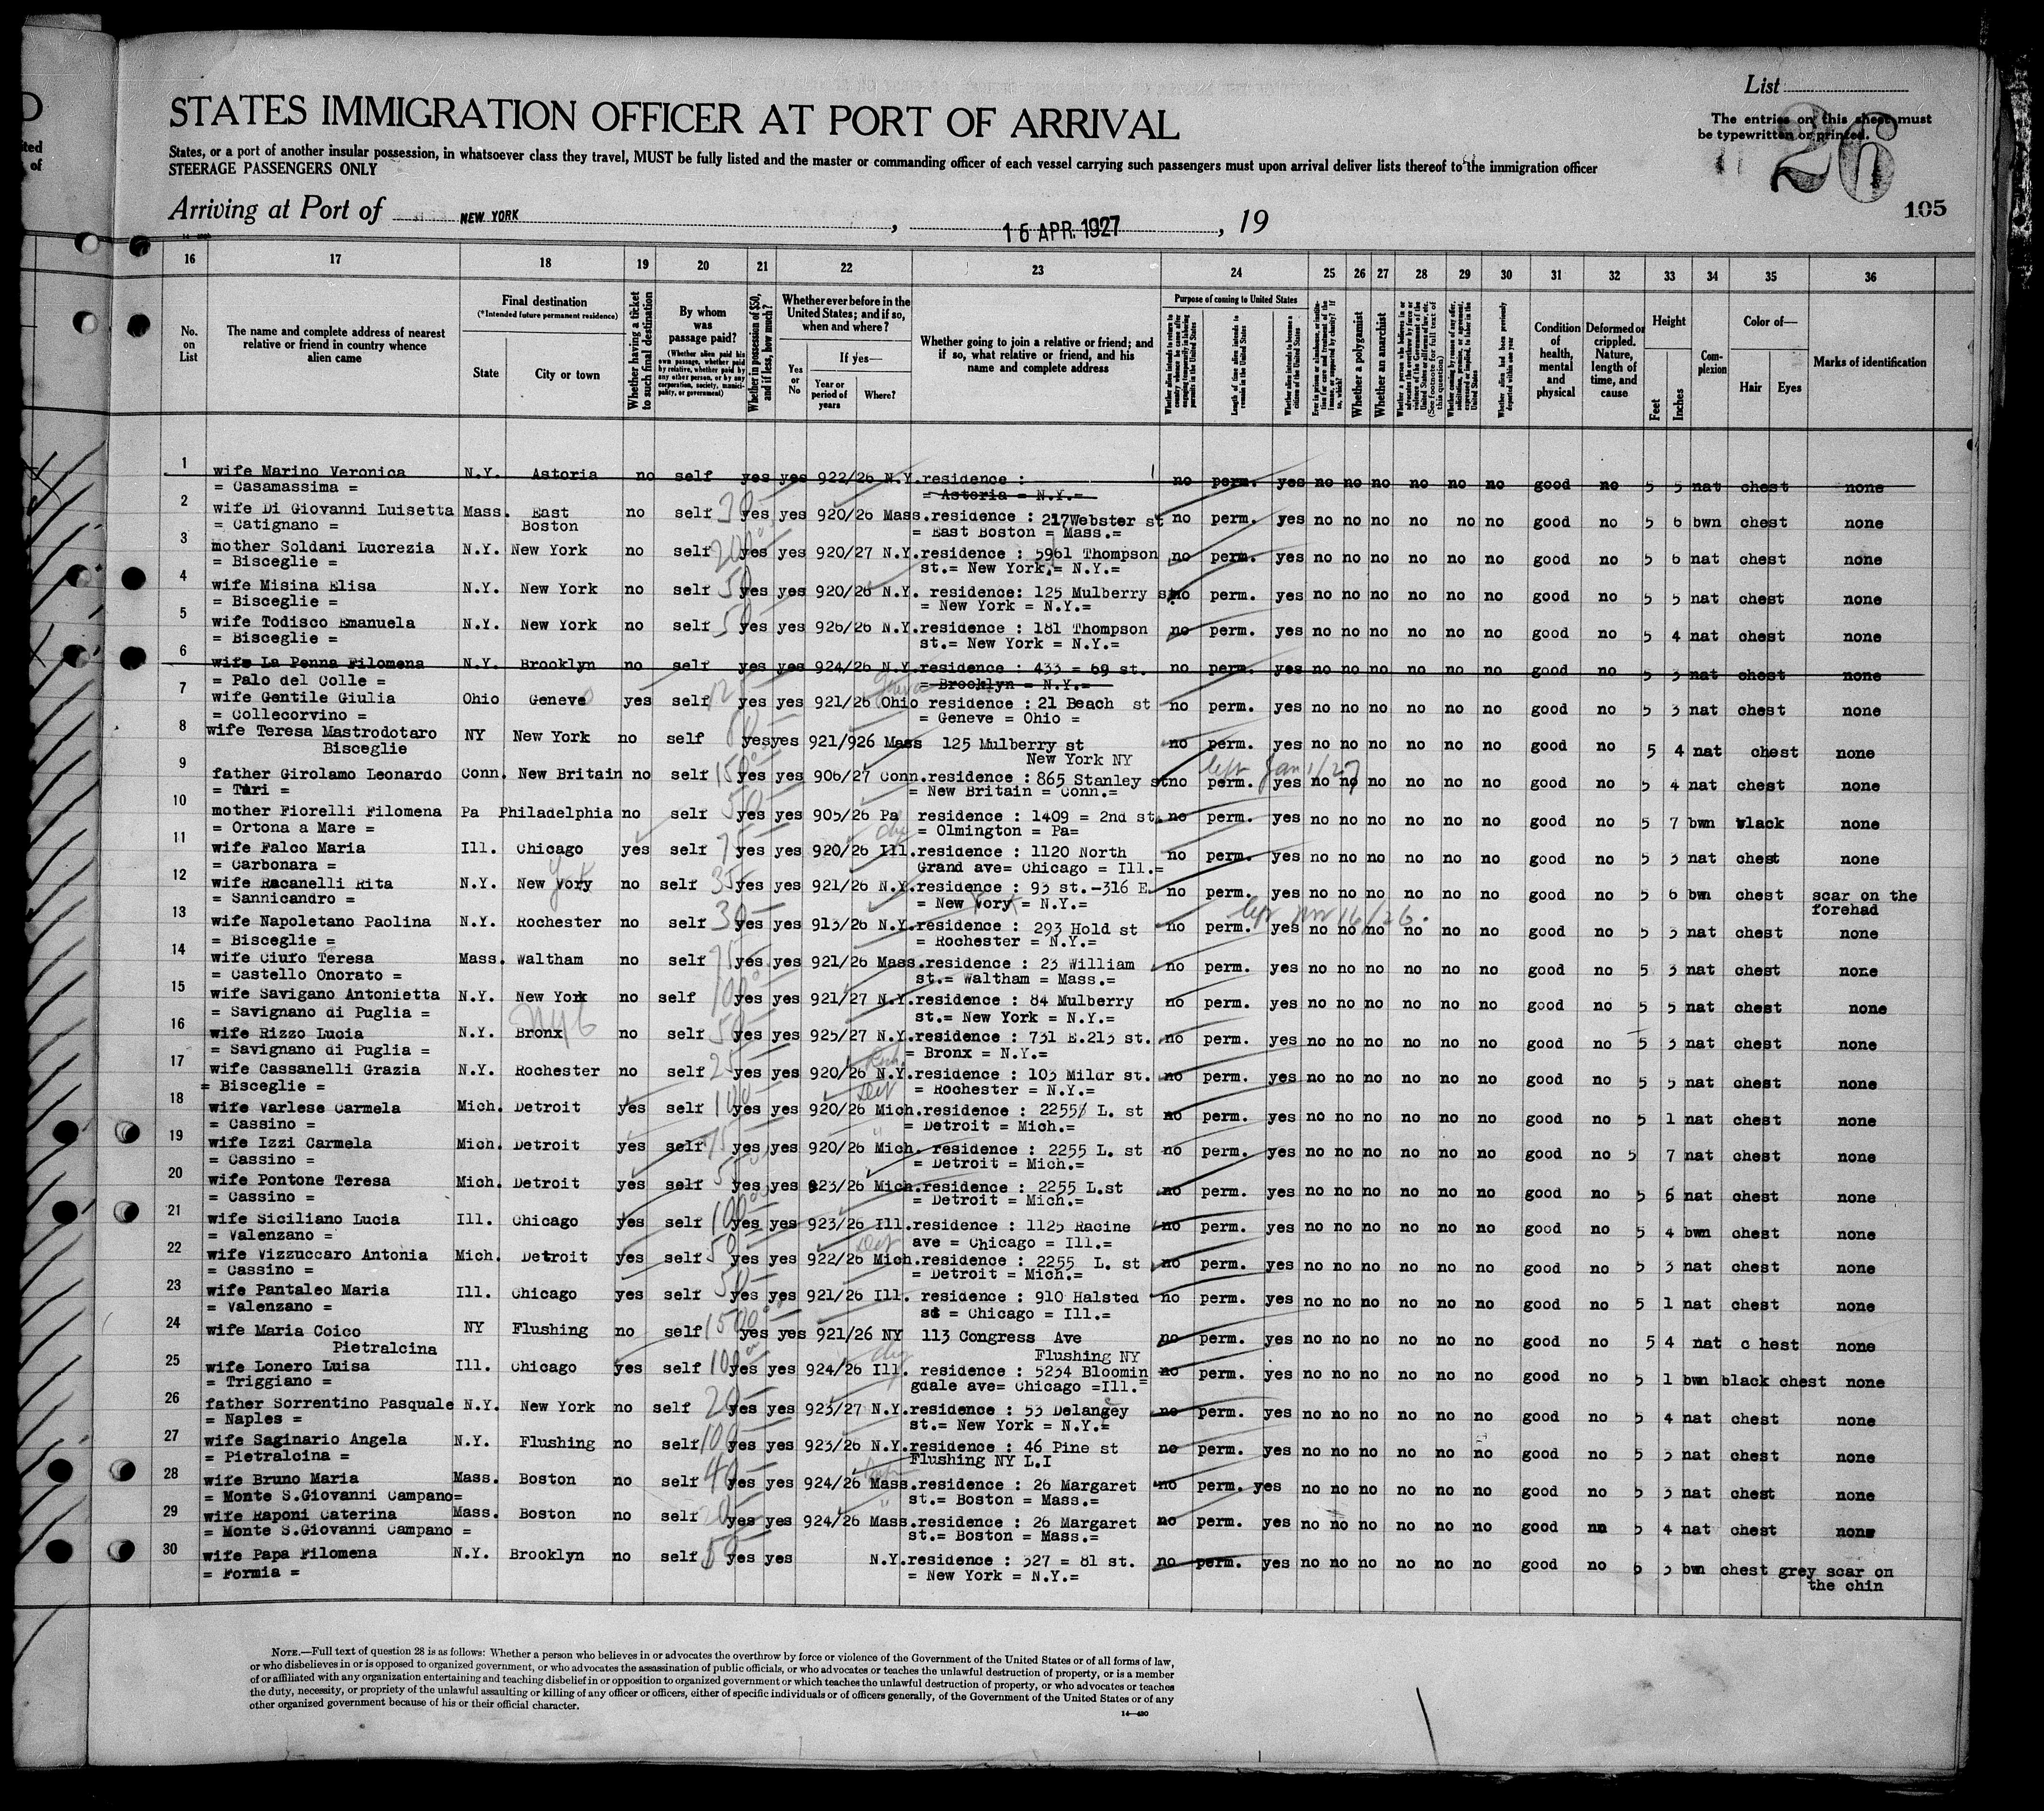 D
ited
of
List
STATES IMMIGRATION OFFICER AT PORT OF ARRIVAL
The entries on this sheet must
be typewritten or printed.
26
States, or a port of another insular possession, in whatsoever class they travel, MUST be fully listed and the master or commanding officer of each vessel carrying such passengers must upon arrival deliver lists thereof to the immigration officer
STEERAGE PASSENGERS ONLY
105
Arriving at Port of NEW YORK , 16 APR. 1927 , 19
16 17 18 19 20 21 22 23 24 25 26 27 28 29 30 31 32 33 34 35 36
No. on List
The name and complete address of nearest relative or friend in country whence alien came
Final destination
(*Intended future permanent residence)
State
City or town
Whether having a ticket to such final destination
By whom was passage paid?
(Whether alien paid his own passage, whether paid by relative, whether paid by any other person, or by any corporation, society, municipality, or government)
Whether in possession of $50, and if less, how much?
Whether ever before in the United States; and if so, when and where?
Yes or No
If yes—
Year or period of years
Where?
Whether going to join a relative or friend; and if so, what relative or friend, and his name and complete address
Purpose of coming to United States
Length of time alien intends to remain in the United States
Whether alien intends to become a citizen of the United States
Whether a polygamist
Whether an anarchist
Condition of health, mental and physical
Deformed or crippled. Nature, length of time, and cause
Height
Feet
Inches
Complexion
Color of—
Hair
Eyes
Marks of identification
1 wife Marino Veronica N.Y. Astoria no self yes yes 922/26 N.Y. residence : no perm. yes no no no no no no good no 5 5 nat chest none
= Casamassima = = Astoria = N.Y.=
2 wife Di Giovanni Luisetta Mass. East no self 30 yes yes 920/26 Mass. residence : 217 Webster st no perm. yes no no no no no no good no 5 6 bwn chest none
= Catignano = Boston = East Boston = Mass.=
3 mother Soldani Lucrezia N.Y. New York no self 200 yes yes 920/27 N.Y. residence : 5961 Thompson no perm. yes no no no no no no good no 5 6 nat chest none
= Bisceglie = st.= New York.= N.Y.=
4 wife Misina Elisa N.Y. New York no self 50 yes yes 920/26 N.Y. residence: 125 Mulberry st no perm. yes no no no no no no good no 5 5 nat chest none
= Bisceglie = = New York = N.Y.=
5 wife Todisco Emanuela N.Y. New York no self 50 yes yes 926/26 N.Y. residence : 181 Thompson no perm. yes no no no no no no good no 5 4 nat chest none
= Bisceglie = st.= New York = N.Y.=
6 wife La Penna Filomena N.Y. Brooklyn no self yes yes 924/26 N.Y. residence : 433 = 69 st. no perm. yes no no no no no no good no 5 3 nat chest none
= Palo del Colle = = Brooklyn = N.Y.=
7 wife Gentile Giulia Ohio Geneve yes self yes yes 921/26 Ohio residence : 21 Beach st no perm. yes no no no no no no good no 5 3 nat chest none
= Collecorvino = = Geneve = Ohio =
8 wife Teresa Mastrodotaro NY New York no self yes yes 921/926 Mass 125 Mulberry st no perm. yes no no no no no no good no 5 4 nat chest none
Bisceglie New York NY
left Jan 1/27
9 father Girolamo Leonardo Conn. New Britain no self 150 yes yes 906/27 Conn. residence : 865 Stanley st no perm. yes no no no no no no good no 5 4 nat chest none
= Turi = = New Britain = Conn.=
10 mother Fiorelli Filomena Pa Philadelphia no self 50 yes yes 905/26 Pa residence : 1409 = 2nd st. no perm. yes no no no no no no good no 5 7 bwn black none
= Ortona a Mare = = Olmington = Pa=
11 wife Falco Maria Ill. Chicago yes self 75 yes yes 920/26 Ill. residence : 1120 North no perm. yes no no no no no no good no 5 3 nat chest none
= Carbonara = Grand ave= Chicago = Ill.=
12 wife Racanelli Rita N.Y. New Vory no self 35 yes yes 921/26 N.Y. residence : 93 st.-316 E. no perm. yes no no no no no no good no 5 6 bwn chest scar on the
= Sannicandro = = New Vory = N.Y.= forehad
13 wife Napoletano Paolina N.Y. Rochester no self 30 yes yes 913/26 N.Y. residence : 293 Hold st no perm. yes no no no no no no good no 5 3 nat chest none
= Bisceglie = = Rochester = N.Y.=
14 wife Ciufo Teresa Mass. Waltham no self 75 yes yes 921/26 Mass. residence : 23 William no perm. yes no no no no no no good no 5 3 nat chest none
= Castello Onorato = st.= Waltham = Mass.=
15 wife Savigano Antonietta N.Y. New York no self 100 yes yes 921/27 N.Y. residence : 84 Mulberry no perm. yes no no no no no no good no 5 5 nat chest none
= Savignano di Puglia = st.= New York = N.Y.=
16 wife Rizzo Lucia N.Y. Bronx no self 50 yes yes 925/27 N.Y. residence : 731 E.213 st. no perm. yes no no no no no no good no 5 3 nat chest none
= Savignano di Puglia = = Bronx = N.Y.=
17 wife Cassanelli Grazia N.Y. Rochester no self 25 yes yes 920/26 N.Y. residence : 103 Mildr st. no perm. yes no no no no no no good no 5 5 nat chest none
= Bisceglie = = Rochester = N.Y.=
18 wife Varlese Carmela Mich. Detroit yes self 100 yes yes 920/26 Mich. residence : 2255 L. st no perm. yes no no no no no no good no 5 1 nat chest none
= Cassino = = Detroit = Mich.=
19 wife Izzi Carmela Mich. Detroit yes self 75 yes yes 920/26 Mich. residence : 2255 L. st no perm. yes no no no no no no good no 5 7 nat chest none
= Cassino = = Detroit = Mich.=
20 wife Pontone Teresa Mich. Detroit yes self yes yes 923/26 Mich. residence : 2255 L.st no perm. yes no no no no no no good no 5 6 nat chest none
= Cassino = = Detroit = Mich.=
21 wife Siciliano Lucia Ill. Chicago yes self 100 yes yes 923/26 Ill. residence : 1125 Racine no perm. yes no no no no no no good no 5 4 bwn chest none
= Valenzano = ave = Chicago = Ill.=
22 wife Vizzuccaro Antonia Mich. Detroit yes self 50 yes yes 922/26 Mich. residence : 2255 L. st no perm. yes no no no no no no good no 5 3 nat chest none
= Cassino = = Detroit = Mich.=
23 wife Pantaleo Maria Ill. Chicago yes self 50 yes yes 921/26 Ill. residence : 910 Halsted no perm. yes no no no no no no good no 5 1 nat chest none
= Valenzano = st = Chicago = Ill.=
24 wife Maria Coico NY Flushing no self 1500 yes yes 921/26 NY 113 Congress Ave no perm. yes no no no no no no good no 5 4 nat c hest none
Pietralcina Flushing NY
25 wife Lonero Luisa Ill. Chicago yes self 100 yes yes 924/26 Ill. residence : 5234 Bloomin no perm. yes no no no no no no good no 5 1 bwn black chest none
= Triggiano = gdale ave= Chicago =Ill.=
26 father Sorrentino Pasquale N.Y. New York no self 20 yes yes 923/27 N.Y. residence : 53 Delangey no perm. yes no no no no no no good no 5 4 nat chest none
= Naples = st.= New York = N.Y.=
27 wife Saginario Angela N.Y. Flushing no self 100 yes yes 923/26 N.Y. residence : 46 Pine st no perm. yes no no no no no no good no 5 3 nat chest none
= Pietralcina = Flushing NY L.I
28 wife Bruno Maria Mass. Boston no self 40 yes yes 924/26 Mass. residence : 26 Margaret no perm. yes no no no no no no good no 5 3 nat chest none
= Monte S.Giovanni Campano= st.= Boston = Mass.=
29 wife Raponi Caterina Mass. Boston no self 20 yes yes 924/26 Mass. residence : 26 Margaret no perm. yes no no no no no no good nn 5 4 nat chest none
= Monte S.Giovanni Campano = st.= Boston = Mass.=
30 wife Papa Filomena N.Y. Brooklyn no self 50 yes yes N.Y. residence : 527 = 81 st. no perm. yes no no no no no no good no 5 3 bwn chest grey scar on
= Formia = = New York = N.Y.= the chin
NOTE.—Full text of question 28 is as follows: Whether a person who believes in or advocates the overthrow by force or violence of the Government of the United States or of all forms of law,
or who disbelieves in or is opposed to organized government, or who advocates the assassination of public officials, or who advocates or teaches the unlawful destruction of property, or is a member
of or affiliated with any organization entertaining and teaching disbelief in or opposition to organized government or which teaches the unlawful destruction of property, or who advocates or teaches
the duty, necessity, or propriety of the unlawful assaulting or killing of any officer or officers, either of specific individuals or of officers generally, of the Government of the United States or of any
other organized government because of his or their official character.
14—430